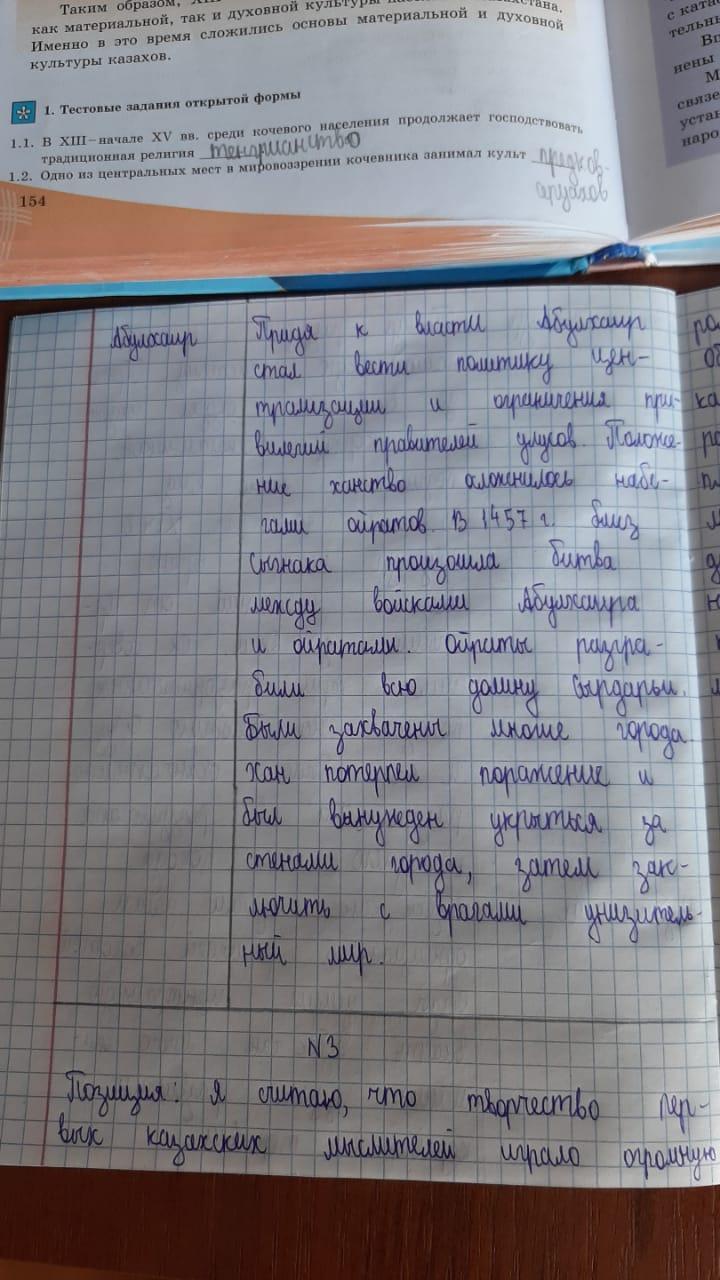 Таким образом, XIII
как материальной, так и духовной культуры
стана.
Именно в это время сложились основы материальной и духовной
культуры казахов.
1. Тестовые задания открытой формы
1.1. В XIII–начале XV вв. среди кочевого населения продолжает господствовать
традиционная религия тенгрианство
1.2. Одно из центральных мест в мировоззрении кочевника занимал культ предков-
аруахов
154
с ката
тельны
Вп
нены
М
связе
уста
наро
Абулхаир
Придя к власти Абулхаир
стал вести политику цен-
трализации и ограничения при-
вилегий правителей улусов. Положе-
ние ханство осложнилось набе-
гами ойратов. В 1457 г. близ
Сыгнака произошла битва
между войсками Абулхаира
и ойратами. Ойраты разгра-
били всю долину Сырдарьи.
Были захвачены многие города.
Хан потерпел поражение и
был вынужден укрыться за
стенами города, затем зак-
лючить с врагами унизитель-
ный мир.
N3
Позиция: я считаю, что творчество пер-
вых казахских мыслителей играло огромную